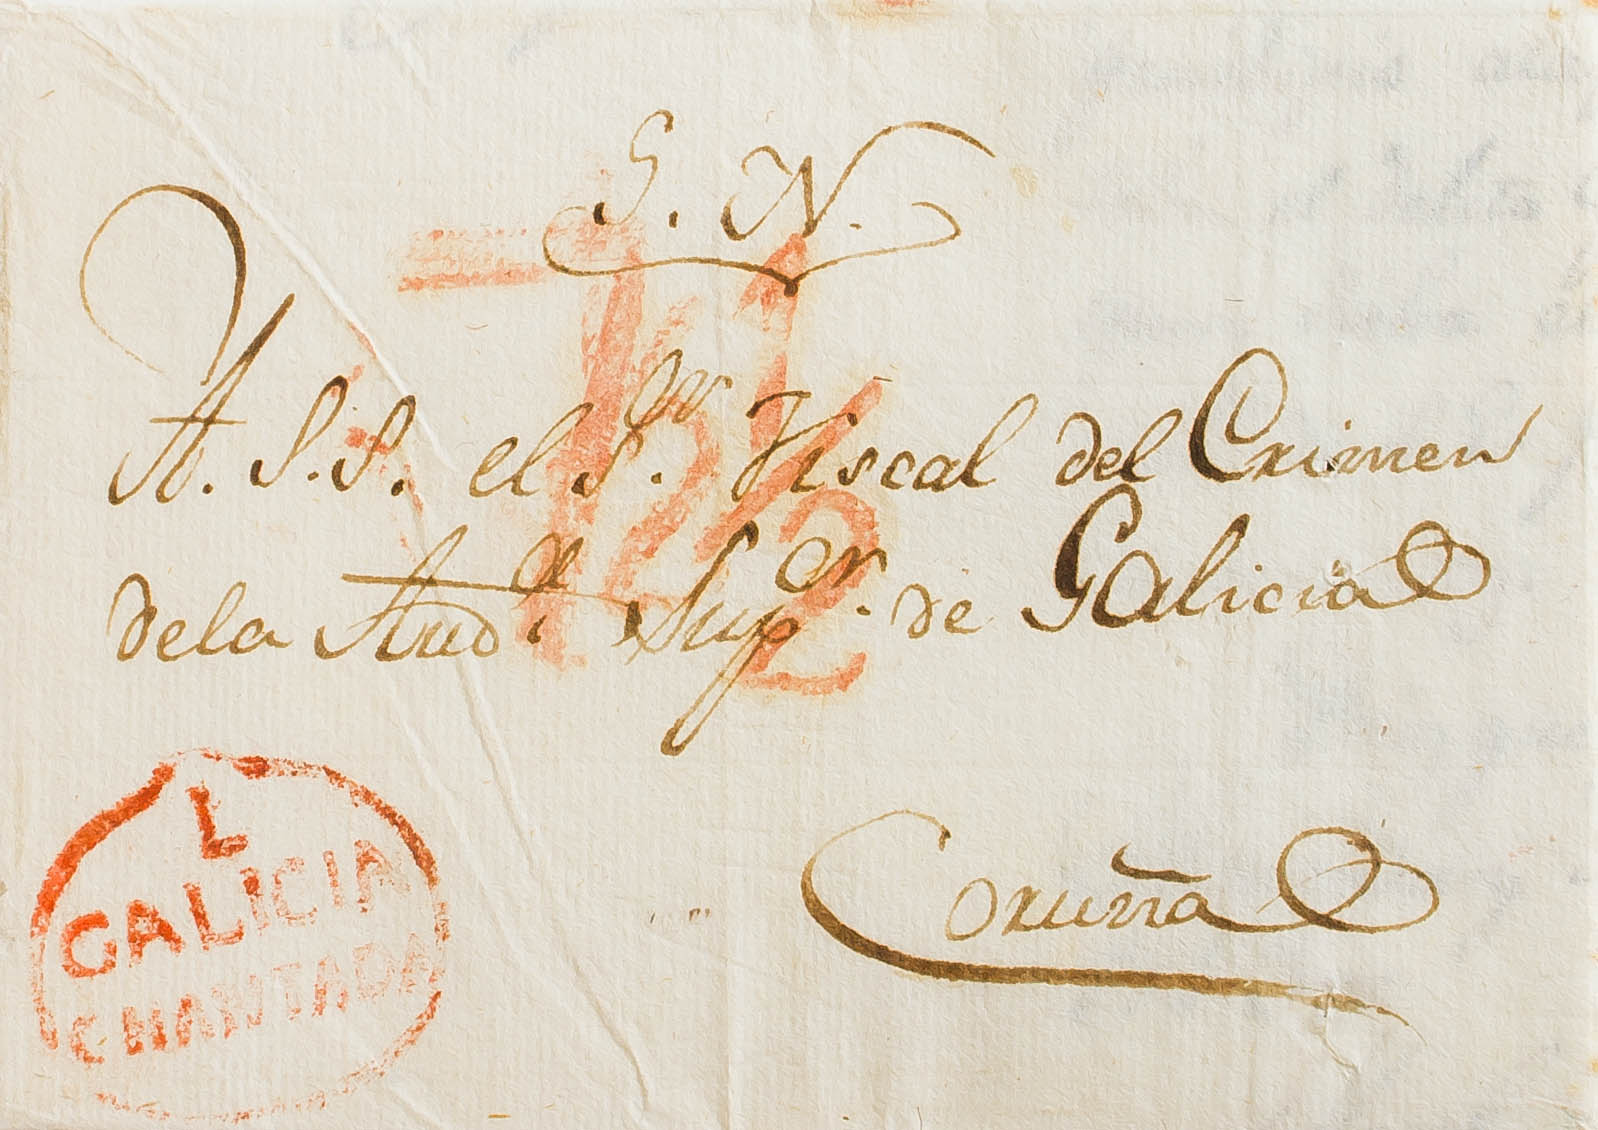 S. N.
A. S.S. el S.or Fiscal del Crimen
de la Aud.a Sup.or de Galicia
Coruña
L
GALICIA
CHANTADA